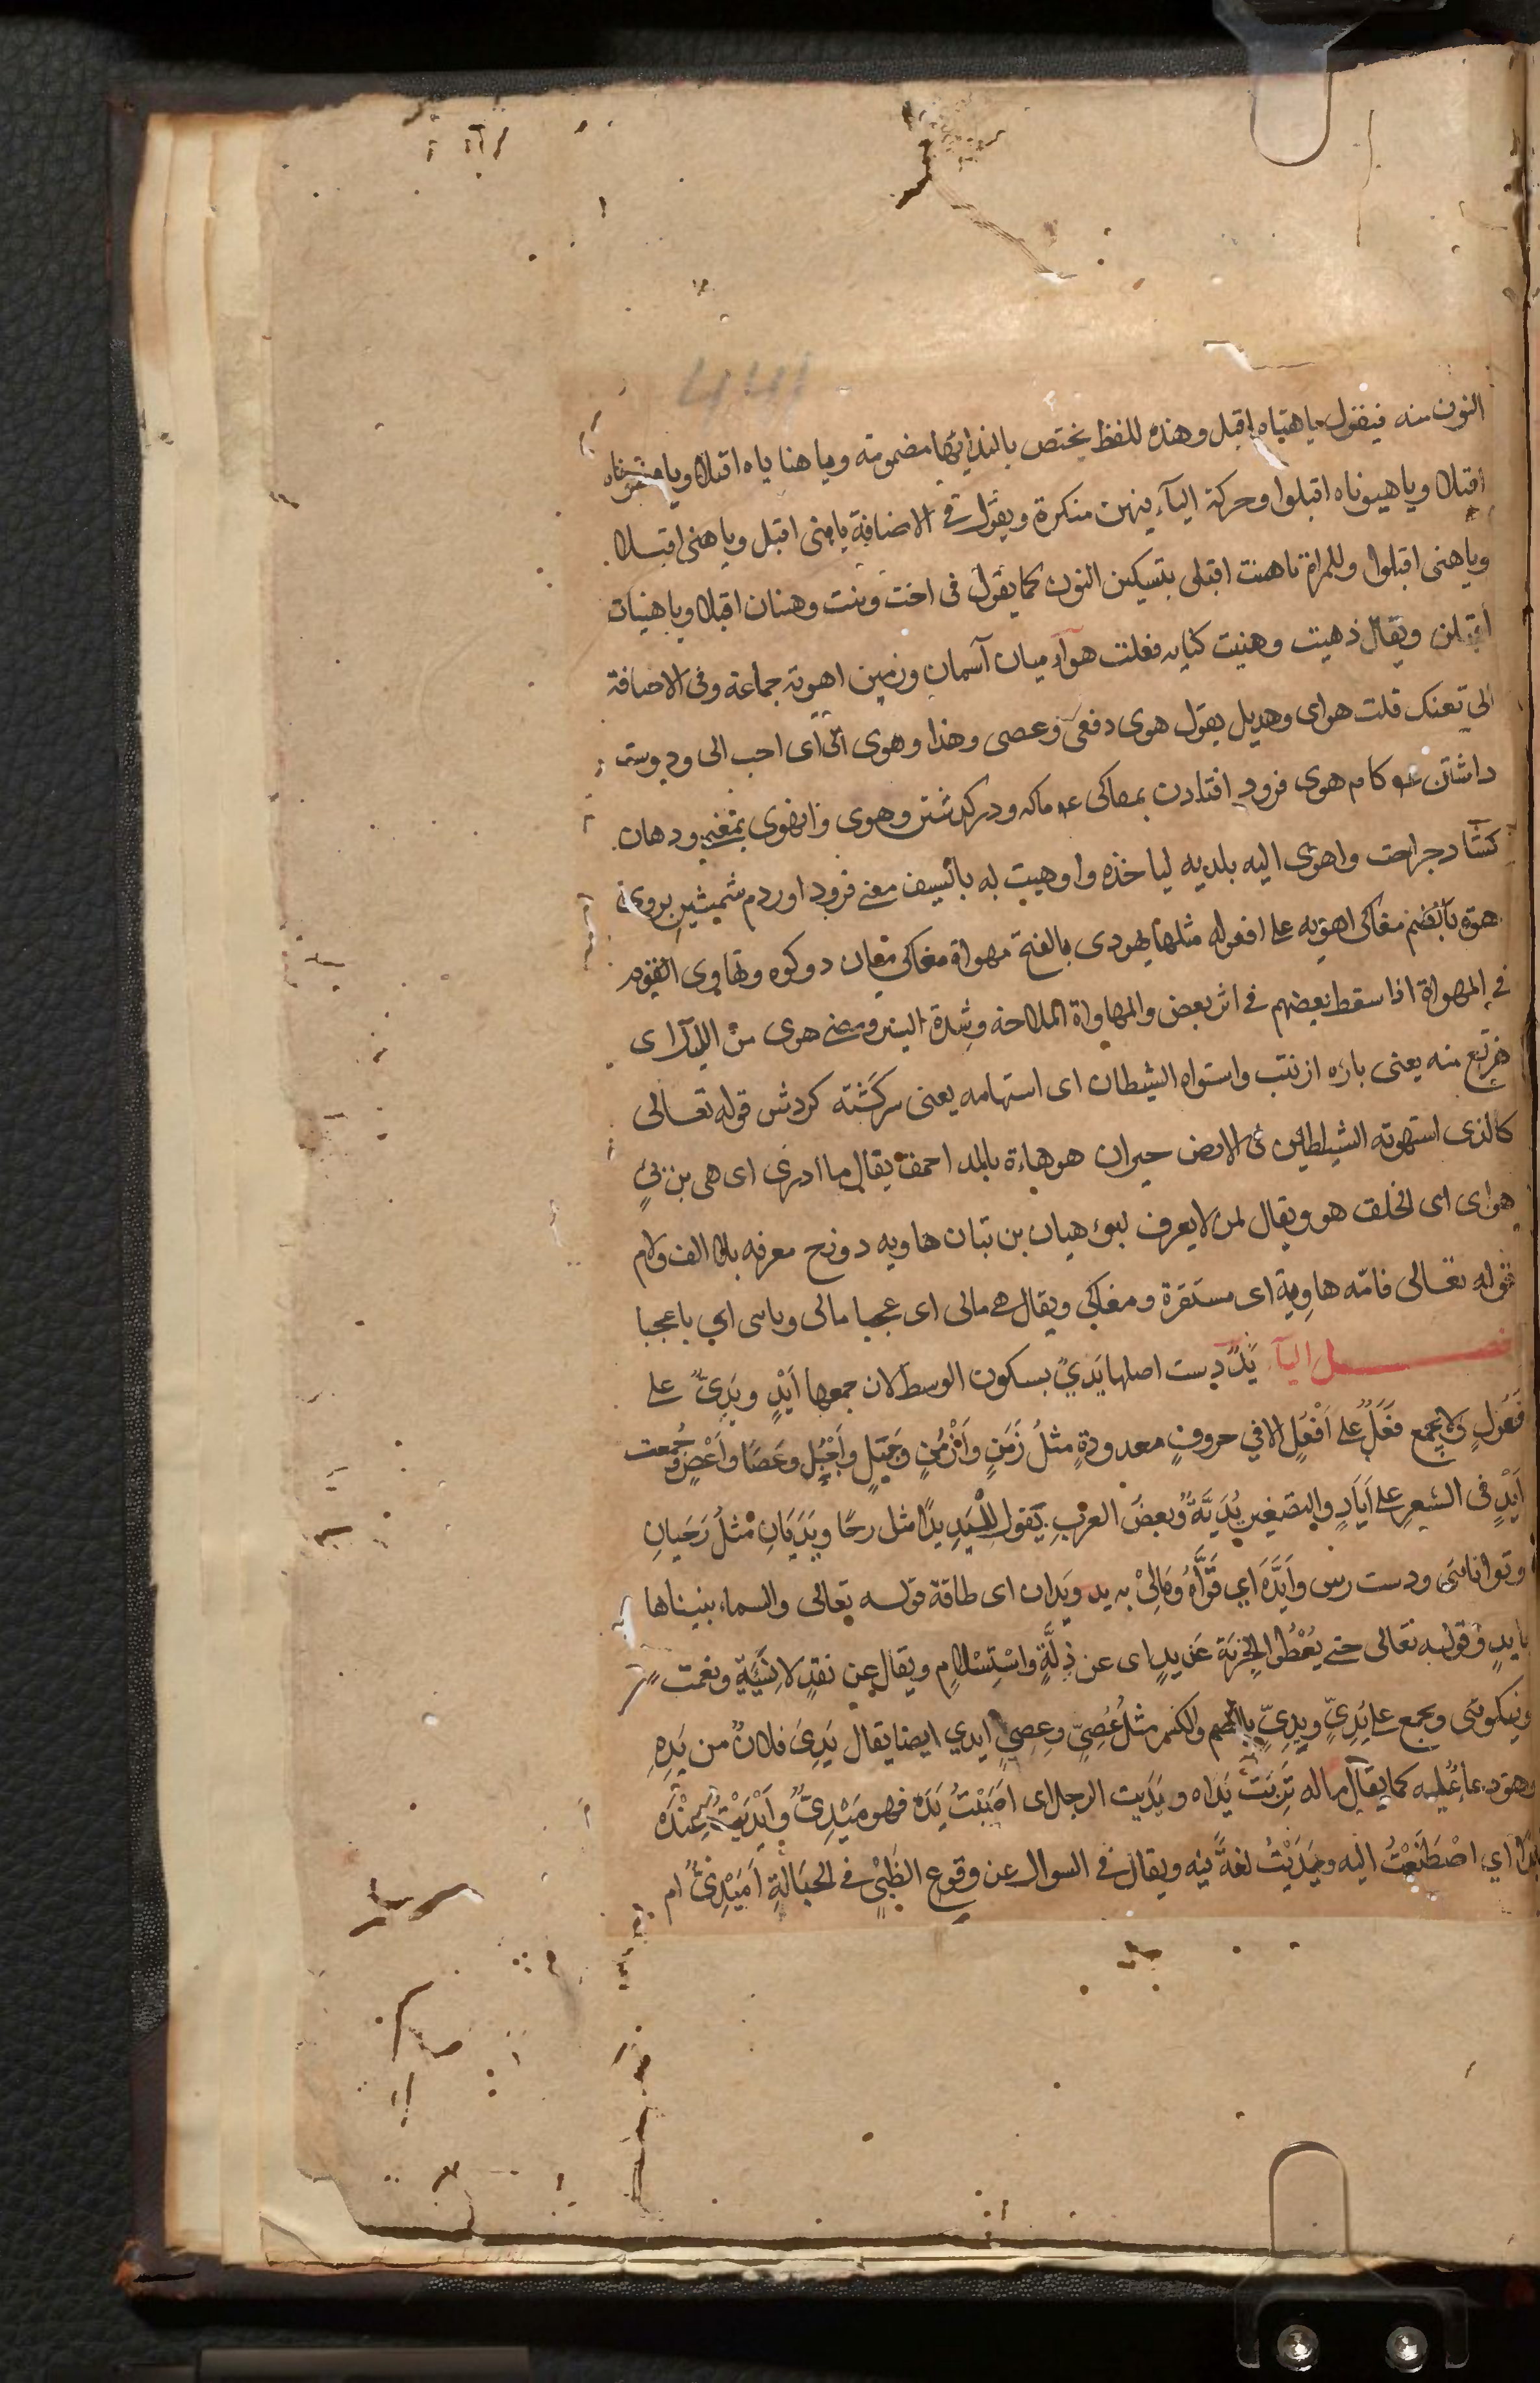 النون منه فيقول ياهناه اقبل وهذه للفظ يختص بالندايها مضمومة وياهناياه اقبلا ويا
اقبلا وياهيوناه اقبلوا وحركة اليآء فيهن منكرة ويقول فى الاضافة ياهنى اقبل وياهنى اقبلا
وياهنى اقبلوا وللمراة ياهنت اقبلى بتسكين النون كما يقول فى اخت وبنت وهنتان اقبلا وياهنيات
اقبلن ويقال ذهيت وهنيت كنايه فعلت هوآء ميان آسمان وزمين اهوية جماعة وفى الاضافة
الى نعنك قلت هواى وهديل يقول هوى دفعى وعصى وهذا وهوى الى اى احب الى ودوست
داشتن كام هوى فرود افتادن بمغاكى ودركذشتن وهوى وانهوى بمعنى ودهان
كشاد جراحت واهوى اليه بلديه لياخذه واوهيت له بالسيف معنى فرود اوردم شمشير بروى
هوة بالضم مغاكى اهويه على افعوله مثلها يهودى بالفتح مهواة مغاكى مغان دوكوه وتهاوى القوم
فى المهواة اذا سقط بعضهم فى اثر بعض والمهاواة الملاحة وشدة السير ومضى هوى من الليل اى
هزيع منه يعنى باره از شب واستواه الشيطان اى استهامه يعنى سركشته كردش قوله تعالى
كالذى استهوته الشياطين فى الارض حيران هوهاءة بالمد احمق يقال ما ادرى اى هى بن بىٍ
هواى اى الخلق هو ويقال لمن لا يعرف ابوه هيان بن تبان هاويه دوزح معرفه بلا الف ولام
قوله تعالى فامّه هاوية اى مستقرة ومغاكى ويقال هى مالى اى عجبا مالى وياهى اى ياعجبا
فصـــل اليآء يَدٌ دست اصلها يَدْيٌ بسكون الوسط لان جمعها اَيْدٍ ويَدِىٌّ على
فَعُولٍ ولا يجمع فَعَلٌ على اَفْعَلٍ الا في حروفٍ معدودةٍ مثلُ زَمَنٍ وَاَزْمُنٍ وَجَبَلٍ وَاَجْبُلٍ وعَصًا واَعْصٍ وجُمعت
اَيْدٍ فى الشعرِ على اَيَادٍ والتصغير يُدَيَّةٌ وبعضُ العرب يقول لليَدِ يدًا مثل رحًا ويَدَيَانِ مثلُ رَحَيانِ
وتوانائى ودست رس واَيَّدَه اي قَوَّاهُ ومَالِىْ به يد ويَدان اى طاقة قوله تعالى والسماء بنيناها
بايدٍ وقوله تعالى حتى يُعْطُوا الجزيَة عَن يدٍ اى عن ذِلَّةٍ واسْتِسْلامٍ ويقال عن نقدٍ لا نَسِيَّةٍ ونعمت
ونيكوئى ويجمع على يُدِىٍّ ويِدِىٍّ بالضم والكسر مثلُ عُصِىٍّ وعِصِىٍّ ايدي ايضا يقال يَدِىَ فلانٌ من يَدِهِ
وهو دعا عُليه كما يقال ماله تَرِبَتْ يَداه ويَدَيت الرجل اى اَصَبْتُ يَدَه فهو مَيْدِىٌّ واَيْدَيْتُ عِنْدَه
يدًا اي اصْطَنَعْتُ اليه ويَدَيْتُ لغةٌ فيه ويقال فى السوال عن وقوع الظَبْىِ فى الحِبَالَةِ اَمَيْدِىٌّ ام